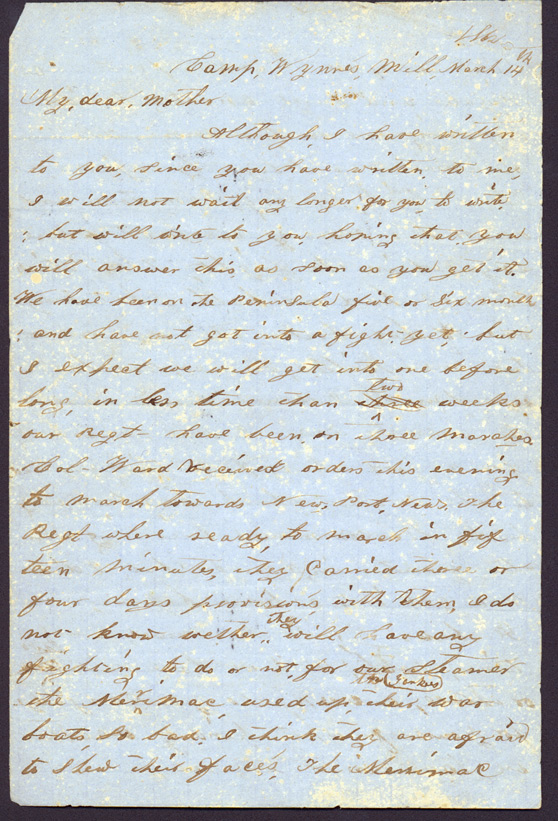 Camp, Wynnes, Mill March 14th
My, dear, Mother
Although, I have written
to you, since you have written, to me,
I will not wait any longer for you, to write,
but will write to you, hoping that, you
will answer this, as soon as you get it.
We have been on the Peninsula five or six month
and have not got into a fight yet. but
I expect we will get into one before
long, in less time than two weeks.
our Regt- have been, on three marches
Col- Ward received orders this evening
to march towards New, Port, News, The
Regt where ready, to march in fif
teen minutes, they Carried three or
four days provisions with them, I do
not know wether, they will have any
fighting to do or not, for our Steamer
the Merimac used up the yankees war
boats, so bad, I think they are afraid
to shew their faces, The Merrimac